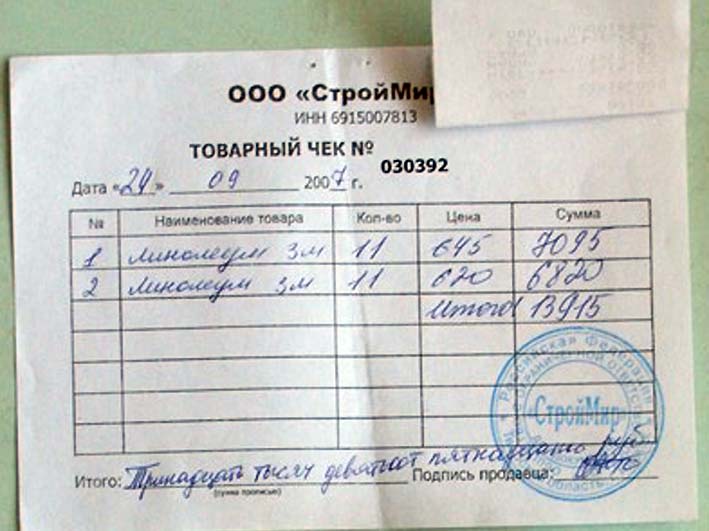 ООО «СтройМир
ИНН 6915007813
ТОВАРНЫЙ ЧЕК № 030392
Дата «24» 09 2007 г.
№ Наименование товара Кол-во Цена Сумма
1 Линолеум 3м 11 645 7095
2 Линолеум 3м 11 620 6820
Итого 13915
Российская Федерация
«СтройМир»
область
Итого: Тринадцать тысяч девятьсот пятнадцать руб Подпись продавца:
(сумма прописью)